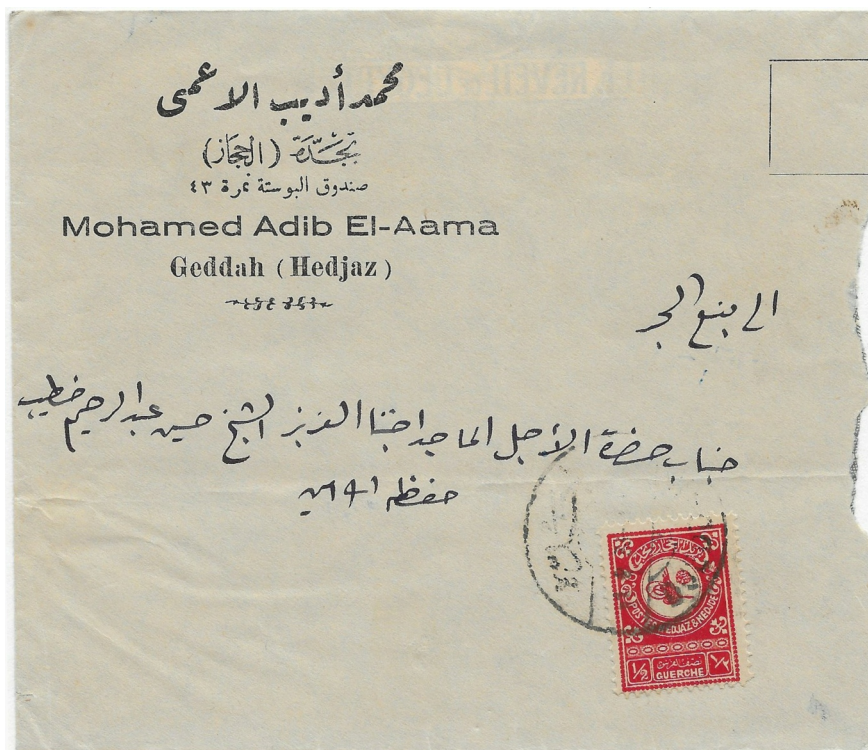 محمد أديب الاعمى
بجدة (الحجاز)
صندوق البوستة نمرة ٤٣
Mohamed Adib El-Aama
Geddah (Hedjaz)
الى ينبع البحر
جناب حضرة الأجل الماجد اخينا العزيز الشيخ حسين عبدالرحيم خطيب
حفظه
POSTES HEDJAZ & NEDJDE
نصف الغرش
½ GUERCHE ١/٢